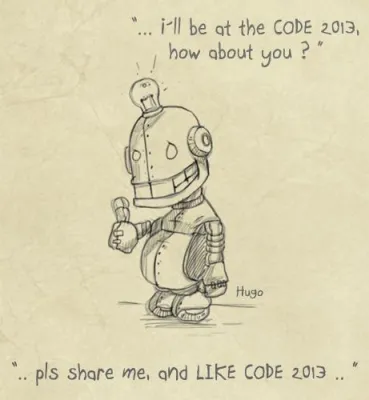 "... i'll be at the CODE 2013,
how about you ? "
Hugo
".. pls share me, and LIKE CODE 2013 .. "